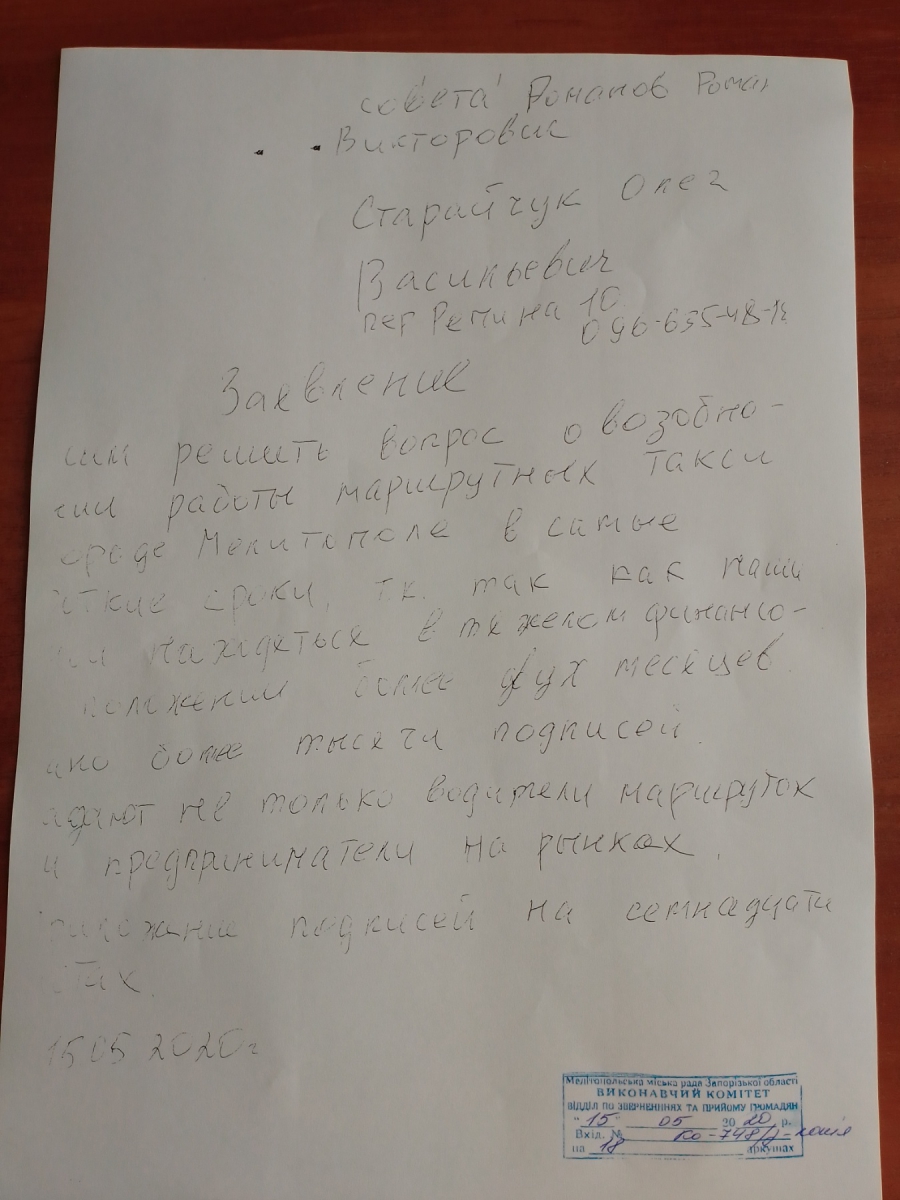 совета Романов Роман
Викторовис
Старайчук Олег
Васильевич
пер Репина 10
096-635-48-1
Заявление
сим решить вопрос о возобно-
нии работы маршрутных такси
ороде Мелитополе в самые
откие сроки, т.к. так как наши
находяться в тяжелом финансо-
положении более двух месяцев.
ано более тысячи подписей.
адают не только водители маршруток
и предприниматели на рынках.
риложение подписей на семнадцати
стах.
15 05 2020г
Мелітопольська міська рада Запорізької області
ВИКОНАВЧИЙ КОМІТЕТ
ВІДДІЛ ПО ЗВЕРНЕННЯХ ТА ПРИЙОМУ ГРОМАДЯН
" 15 " 05 20 20 р.
Вхід. № ко-748/ -копія
на 18 аркушах